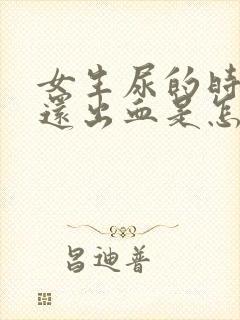 女生尿的時
還出血是怎
昌迪普